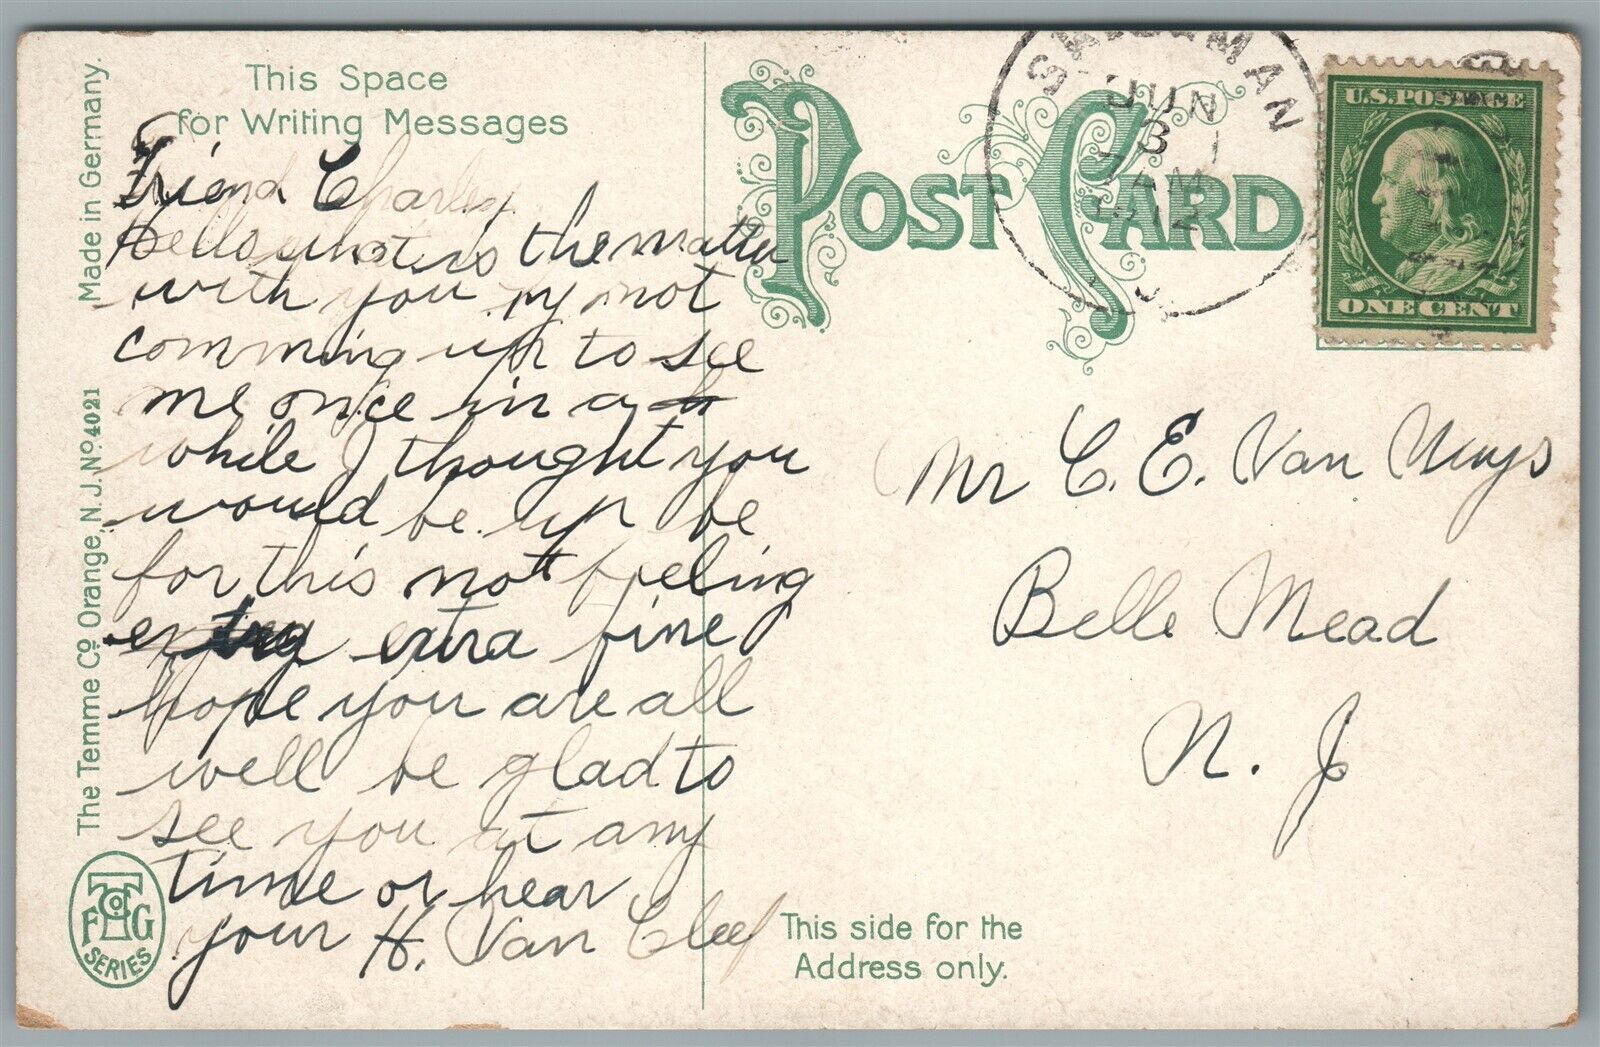 This Space
for Writing Messages
Friend Charley
Hello what is the matter
with you by not
comming up to see
me once in a
while I thought you
would be up be
for this not feeling
extra fine
hope you are all
well be glad to
see you at any
time or hear
your H. Van Cleef
Made in Germany.
The Temme Co. Orange, N. J. No. 4021
T Co F G
SERIES
POST CARD
SKILLMAN
JUN
3
7 AM
1912
N.J.
U.S. POSTAGE
ONE CENT
Mr C. E. Van Nuys
Belle Mead
N. J
This side for the
Address only.